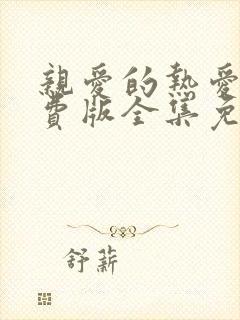 親愛的熱愛
費版全集免
舒薪